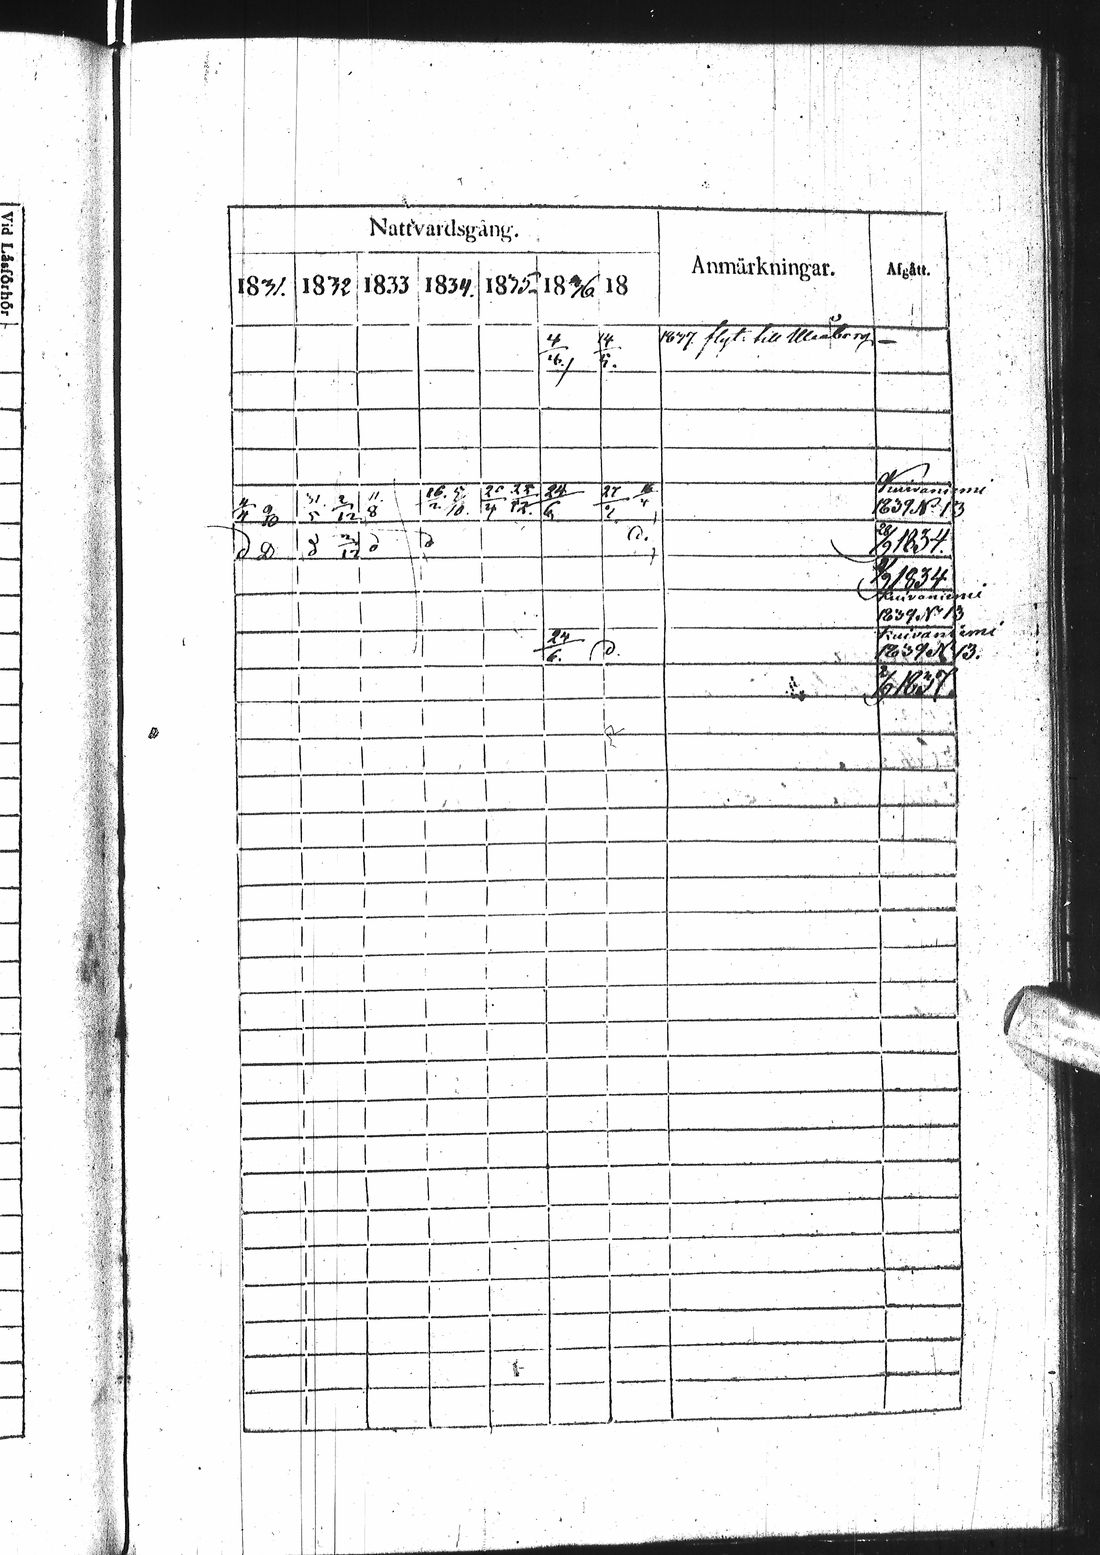 Vid Läsförhör
Nattvardsgång.
Anmärkningar.
Afgått.
1831. 1832 1833 1834. 1835. 1836 18
4/6. 14/5. 1837 flyt. till Uleåborg —
Kuivaniemi
4/4 9/10 31/5 2/12 11/8 16/2. 5/10. 25/4 24/6 27/2 1839 No 13
D D D 2/12 D D D. 28/9 1834.
/9 1834
Kuivaniemi
1839 No 13
Kuivaniemi
24/6. D. 1839 No 13.
2/9 1837